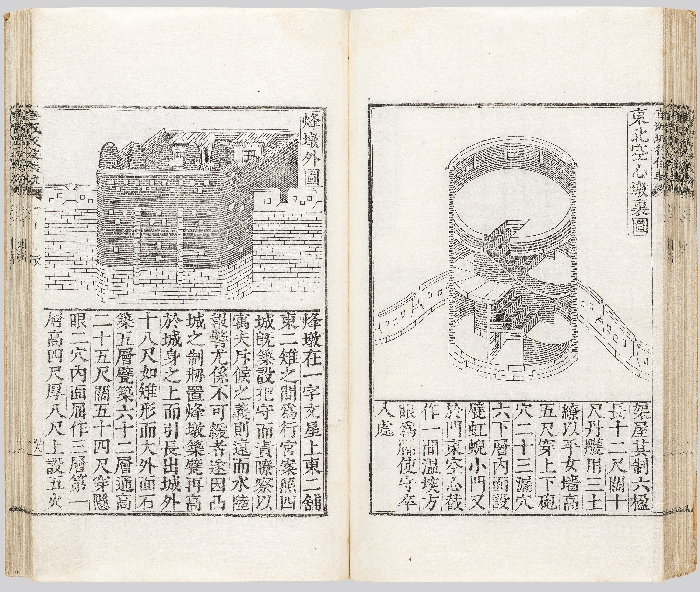 東北空心墩裏圖
架屋其制六楹
長十二尺闊十
尺丹雘用三土
繚以平女墻高
五尺穿上下砲
穴二十三漏穴
六下層內面設
甓虹蜺小門又
於門東空心截
作一間溫埃方
眼爲牖使守卒
入處
烽墩外圖
烽墩在一字文屋上東二舖
東二雉之間爲行宮案照四
城旣築設把守而責瞭察以
寓夫斥候之義則遠而水陸
報警尤係不可緩者遂因凸
城之制將置烽墩築甓再高
於城身之上而引長出城外
十八尺如雉形而大外面石
築五層甓築六十二層通高
二十五尺闊五十四尺穿隱
眼二穴內面層作三層第一
層高四尺厚八尺上設五火